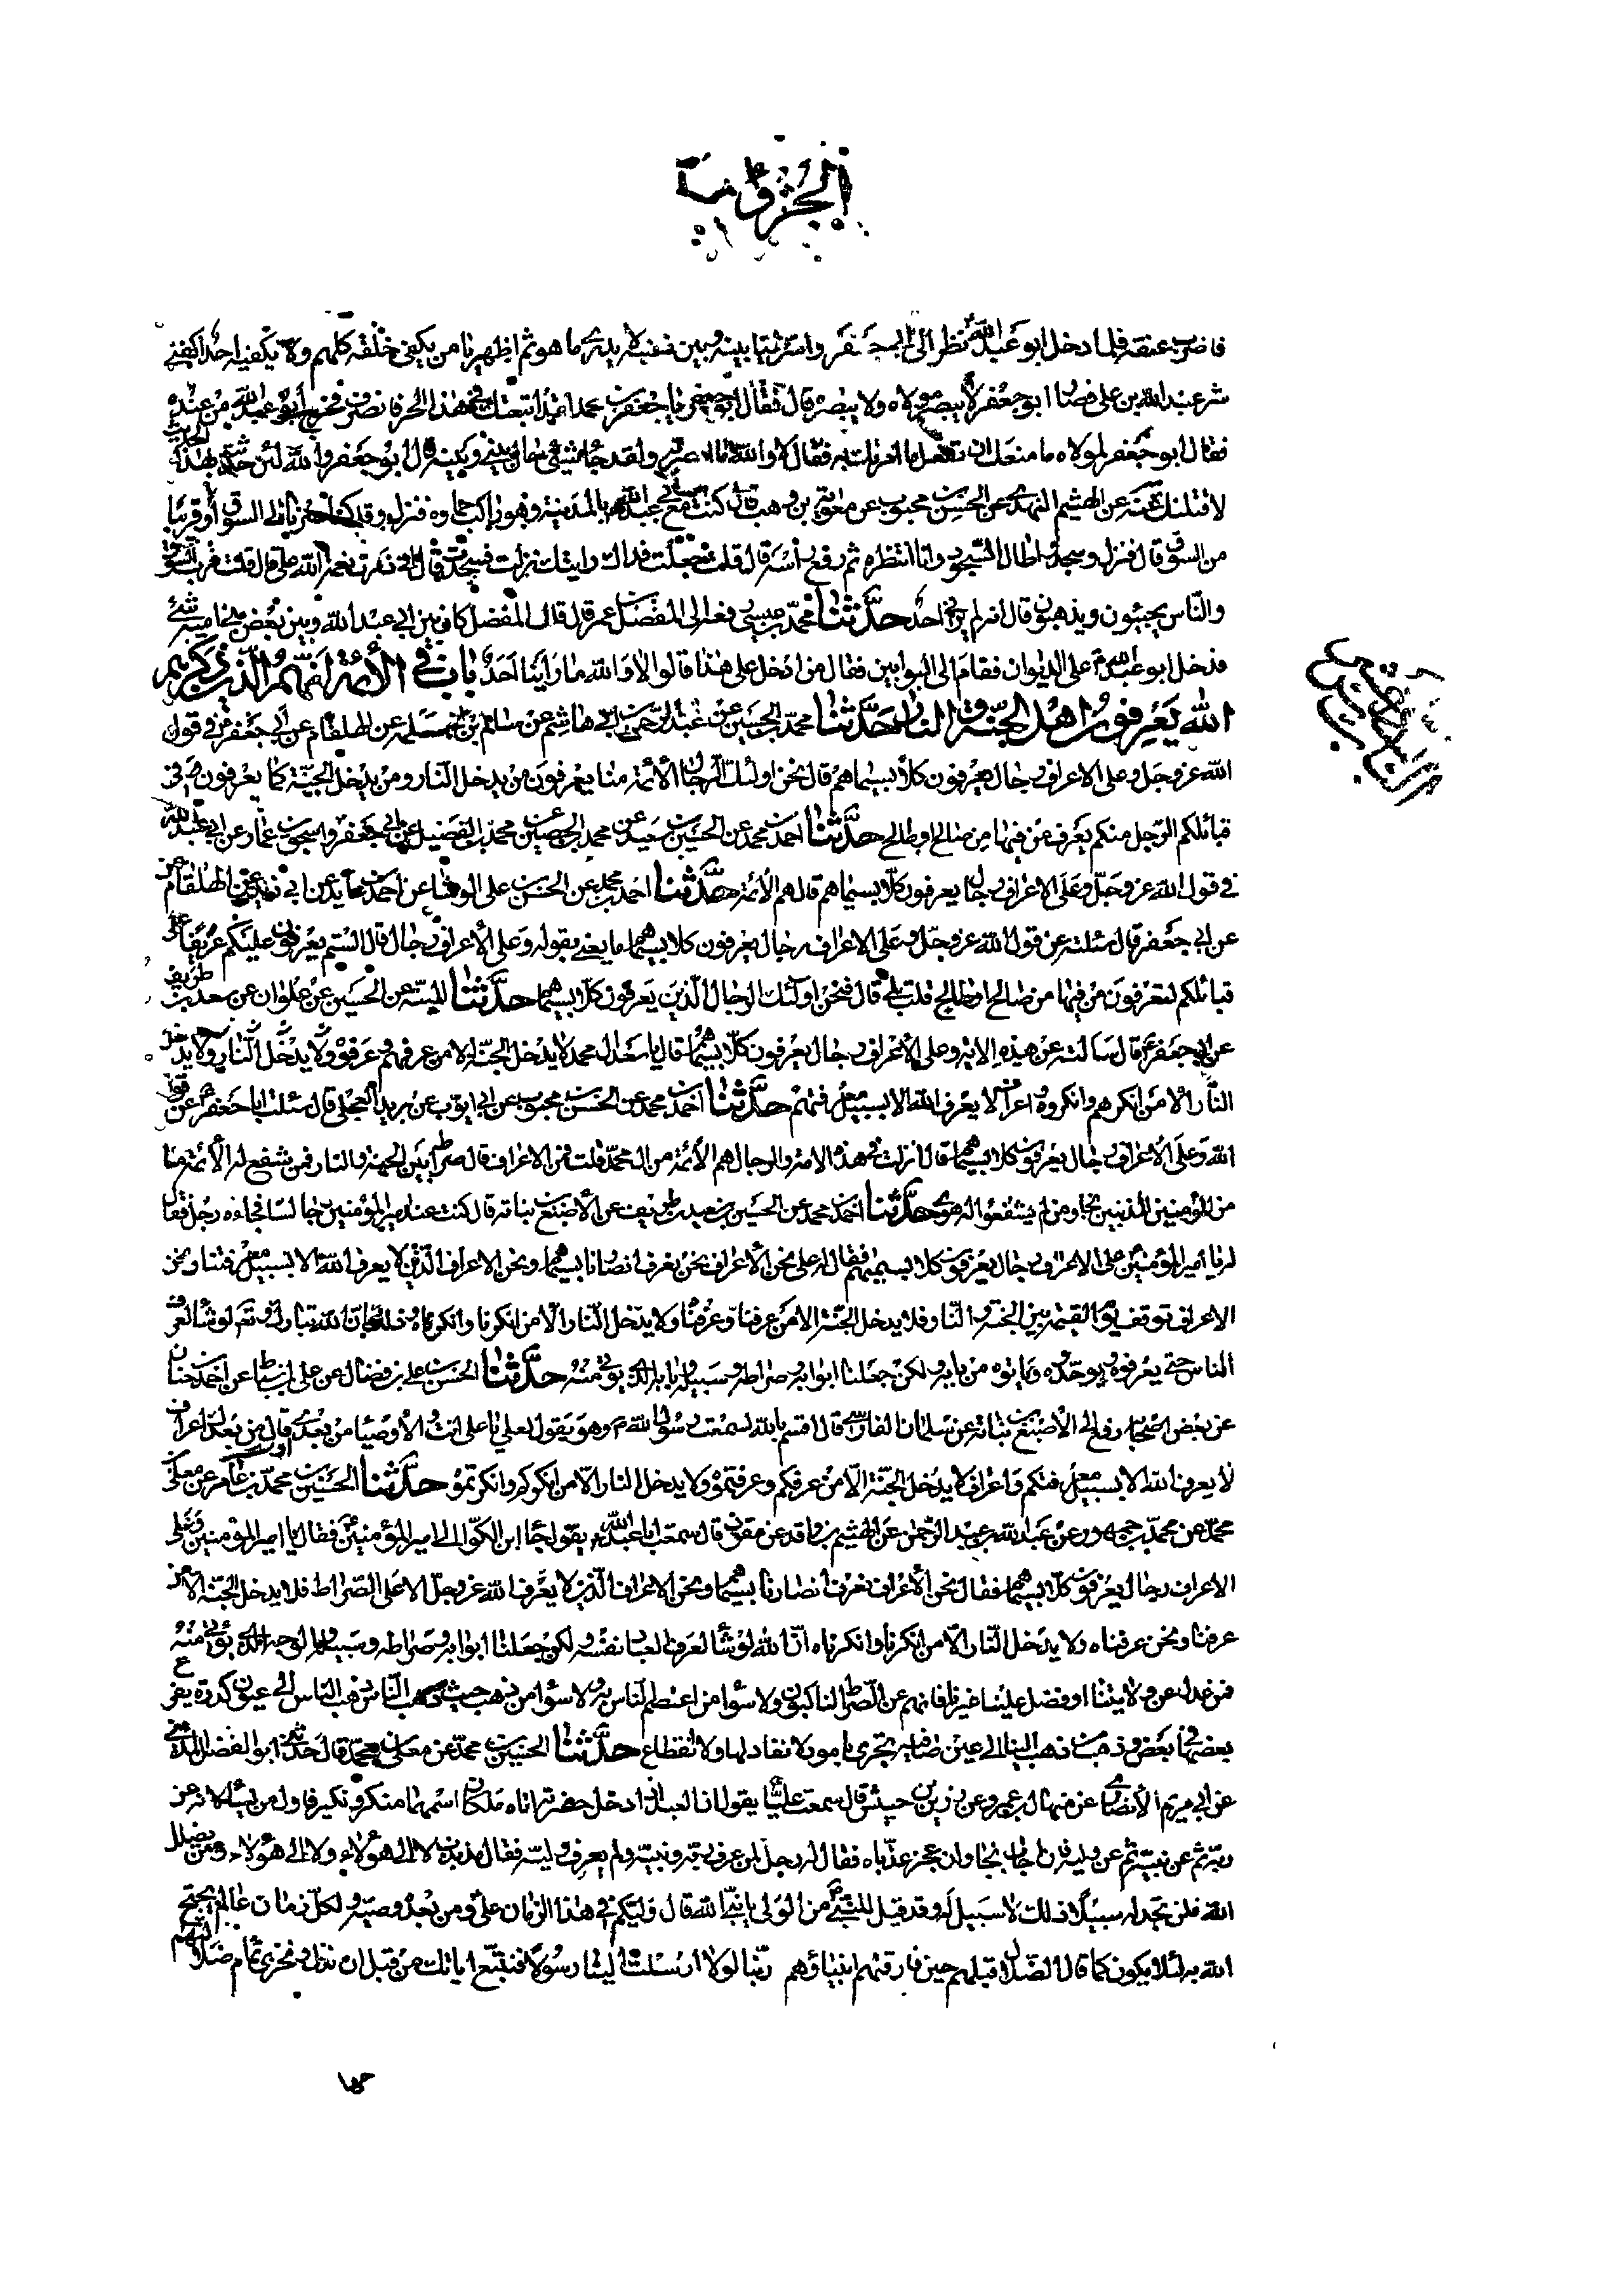 فاضرب عنقه فلما دخل ابو عبد الله نظر الى ابي جعفر واسر شيئا بينه وبين نفسه لا يدرى ما هو ثم اظهر يا من يكفى خلقه كلهم ولا يكفيه احد اكفنى
شر عبد الله بن على فصار ابو جعفر لا يبصر مولاه ولا يبصره قال فقال ابو جعفر يا جعفر بن محمد لقد اتعبتك فى هذا الحر فانصرف فخرج ابو عبد الله من عنده
فقال ابو جعفر لمولاه ما منعك ان تفعل ما امرتك به فقال لا والله ما ابصرته ولقد جاء شىء حال بينى وبينه قال ابو جعفر والله لئن حدثت بهذا الحديث
لاقتلنك عن الهيثم النهدى عن الحسن بن محبوب عن معوية بن وهب قال كنت مع ابى عبد الله بالمدينة وهو راكب حماره فنزل وقد كنا صرنا الى السوق او قريبا
من السوق قال فنزل وسجد واطال السجود وانا انتظره ثم رفع راسه قال قلت جعلت فداك رايتك نزلت فسجدت قال انى ذكرت نعمة الله على قال قلت قرب السوق
والناس يجيئون ويذهبون قال انه لم يرنى احد حدثنا محمد بن عيسى المفضل بن عمر قال كان بين ابى عبد الله وبين بعض بنى امية شىء
فدخل ابو عبد الله على الديوان فقام الى البوابين فقال من ادخل على هذا قالوا لا والله ما راينا احدا باب فى الأئمة انهم الذين ذكرهم
الله يعرفون اهل الجنة والنار حدثنا محمد بن الحسين عن عبد الرحمن بن ابى هاشم عن سالم بن ابى سلمة عن الهلقام عن ابى جعفر فى قول
الله عز وجل وعلى الاعراف رجال يعرفون كلا بسيماهم قال نحن اولئك الرجال الأئمة منا يعرفون من يدخل النار ومن يدخل الجنة كما يعرفون فى
قبائلكم الرجل منكم يعرف من فيها من صالح او طالح حدثنا احمد بن محمد عن الحسين بن سعيد عن محمد بن الحصين عن محمد بن الفضيل عن ابى جعفر واسحق بن عمار عن ابى عبد الله
فى قول الله عز وجل وعلى الاعراف رجال يعرفون كلا بسيماهم قال هم الأئمة حدثنا احمد بن محمد عن الحسن بن على الوشا عن احمد بن عايذ عن ابى عن الهلقام
عن ابى جعفر قال سئلته عن قول الله عز وجل وعلى الاعراف رجال يعرفون كلا بسيماهم ما يعنى بقوله وعلى الأعراف رجال قال الستم يعرفون عليكم عريفا على
قبائلكم لتعرفون من فيها من صالح او طالح قلت بلى قال فنحن اولئك الرجال الذين يعرفون كلا بسيماهم حدثنا عن الحسين بن علوان عن سعد بن طريف
عن ابى جعفر قال سالته عن هذه الاية وعلى الأعراف رجال يعرفون كلا بسيماهم قال يا سعد ال محمد لا يدخل الجنة الا من عرفهم وعرفوه ولا يدخل النار ولا يدخل
النار الا من انكرهم وانكروه اعراف لا يعرف الله الا بسبيل معرفتهم حدثنا احمد بن محمد عن الحسن بن محبوب عن ابى ايوب عن بريد العجلى قال سئلت ابا جعفر عن قول
الله وعلى الأعراف رجال يعرفون كلا بسيماهم قال نزلت فى هذه الامة والرجال هم الأئمة من ال محمد قلت فمن الاعراف قال صراط بين الجنة والنار فمن شفع له الأئمة منا
من المؤمنين المذنبين نجا ومن لم يشفعوا له هوى حدثنا احمد بن محمد عن الحسين بن سعيد بن طريف عن الأصبغ بن نباتة قال كنت عند امير المؤمنين جالسا فجاءه رجل فقال
له يا امير المؤمنين على الاعراف رجال يعرفون كلا بسيماهم فقال له على نحن الأعراف نحن نعرف انصارنا بسيماهم ونحن الاعراف الذين لا يعرف الله الا بسبيل معرفتنا ونحن
الاعراف نوقف يوم القيمة بين الجنة والنار فلا يدخل الجنة الا من عرفنا وعرفناه ولا يدخل النار الا من انكرنا وانكرناه وذلك بان الله تبارك وتعالى لو شاء لعرف
الناس حتى يعرفوه ويوحدوه وياتوه من بابه ولكن جعلنا ابوابه وصراطه وسبيله وبابه الذى يؤتى منه حدثنا الحسن بن على بن فضال عن على بن اسباط عن احمد بن حنان
عن بعض اصحابه رفعه الى الأصبغ بن نباتة عن سلمان الفارسى قال اقسم بالله لسمعت رسول الله وهو يقول لعلى يا على انت والأوصيا من بعدى او قال من بعدك اعراف
لا يعرف الله الا بسبيل معرفتكم واعراف لا يدخل الجنة الا من عرفكم وعرفتموه ولا يدخل النار الا من انكركم وانكرتموه حدثنا الحسين بن محمد بن عامر عن معلى بن
محمد عن محمد بن جمهور عن عبد الله بن عبد الرحمن عن الهيثم بن واقد عن مقرن قال سمعت ابا عبد الله يقول جا ابن الكوا الى امير المؤمنين فقال يا امير المؤمنين وعلى
الاعراف رجال يعرفون كلا بسيماهم فقال نحن الأعراف نعرف انصارنا بسيماهم ونحن الاعراف الذين لا يعرف الله عز وجل الا على الصراط فلا يدخل الجنة الا من
عرفنا ونحن عرفناه ولا يدخل النار الا من انكرنا وانكرناه ان الله لو شا لعرف العباد نفسه ولكن جعلنا ابوابه وصراطه وسبيله والوجه الذى يؤتى منه
فمن عدل عن ولايتنا او فضل علينا غيرنا فانهم عن الصراط لناكبون ولا سوا من اعتصم الناس به ولا سوا من ذهب حيث ذهب الناس ذهب الناس الى عيون كدرة يفرغ
بعضها فى بعض وذهب من ذهب الينا الى عين صافية تجرى بامور لا نفاد لها ولا انقطاع حدثنا الحسين بن محمد عن معلى بن محمد قال حدثنى ابو الفضل المدنى
عن ابى مريم الأنصارى عن منهال بن عمرو عن زر بن حبيش قال سمعت عليا يقول ان العبد اذا ادخل حضرته اتاه ملكان اسمهما منكر ونكير فاول من يسئلانه عن
ربه ثم عن نبيه ثم عن وليه فان اجاب نجا وان عجز عذباه فقال له رجل لمن عرف ربه ونبيه ولم يعرف وليه فقال مذبذب لا الى هؤلاء ولا الى هؤلاء ومن يضلل
الله فلن تجد له سبيلا ذلك لا سبيل له وقد قيل للنبى من الولى يا نبى الله قال وليكم فى هذا الزمان على ومن بعده وصيه ولكل زمان عالم يحتج
الله به لئلا يكون كما قال الضلال قبلهم حين فارقتهم انبياؤهم ربنا لولا ارسلت الينا رسولا فنتبع اياتك من قبل ان نذل ونخزى تمام ضلالتهم